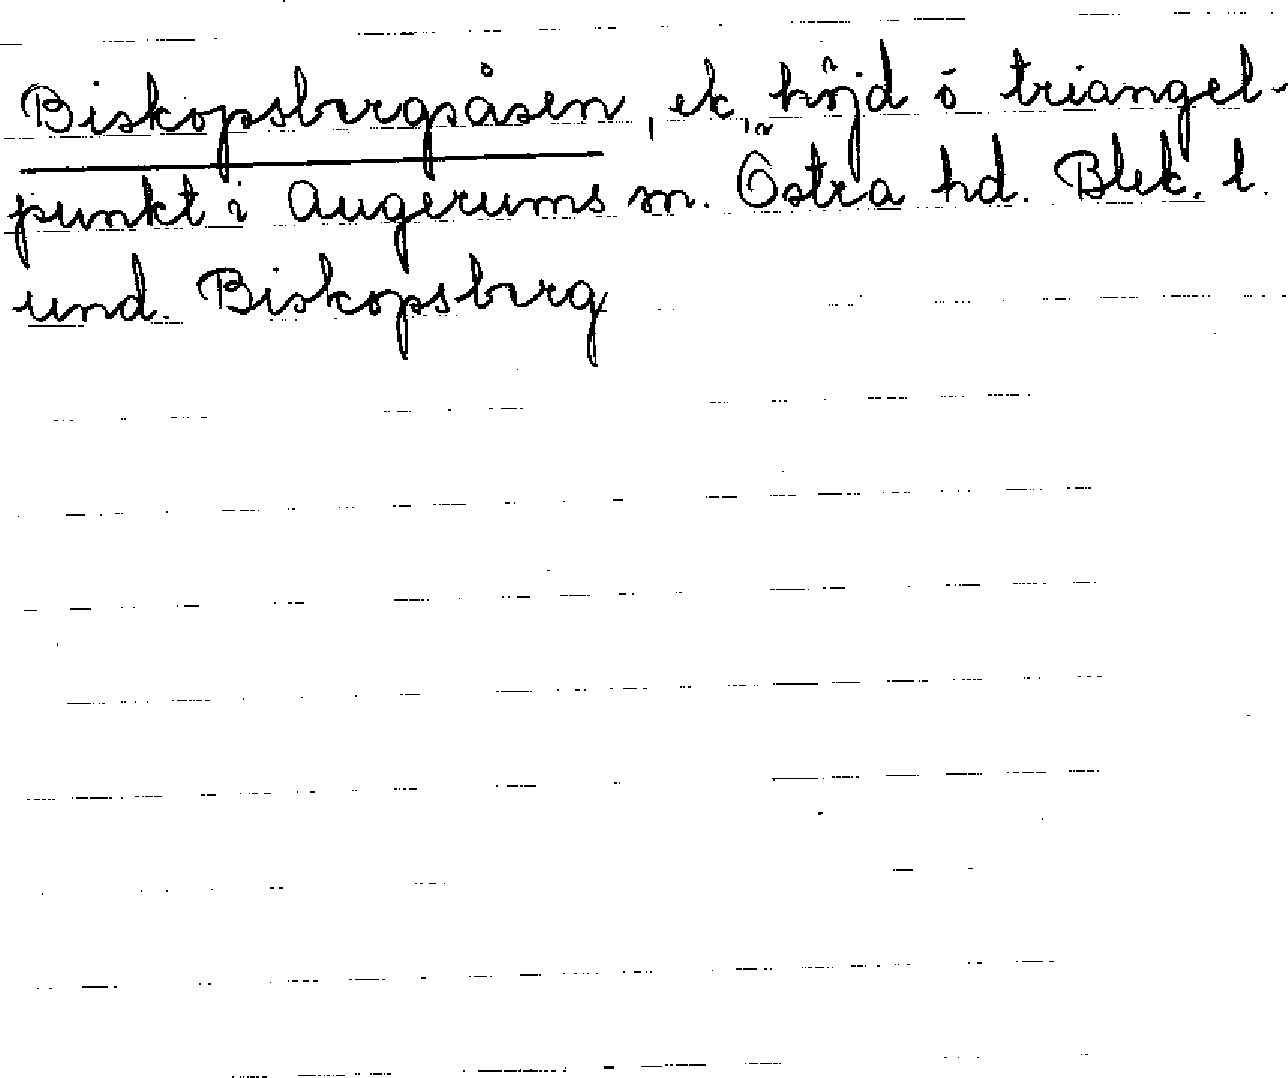 Biskopsbergsåsen, ek, höjd o triangel-
punkt i Augerums sn. Östra hd. Blek. l.
und. Biskopsberg